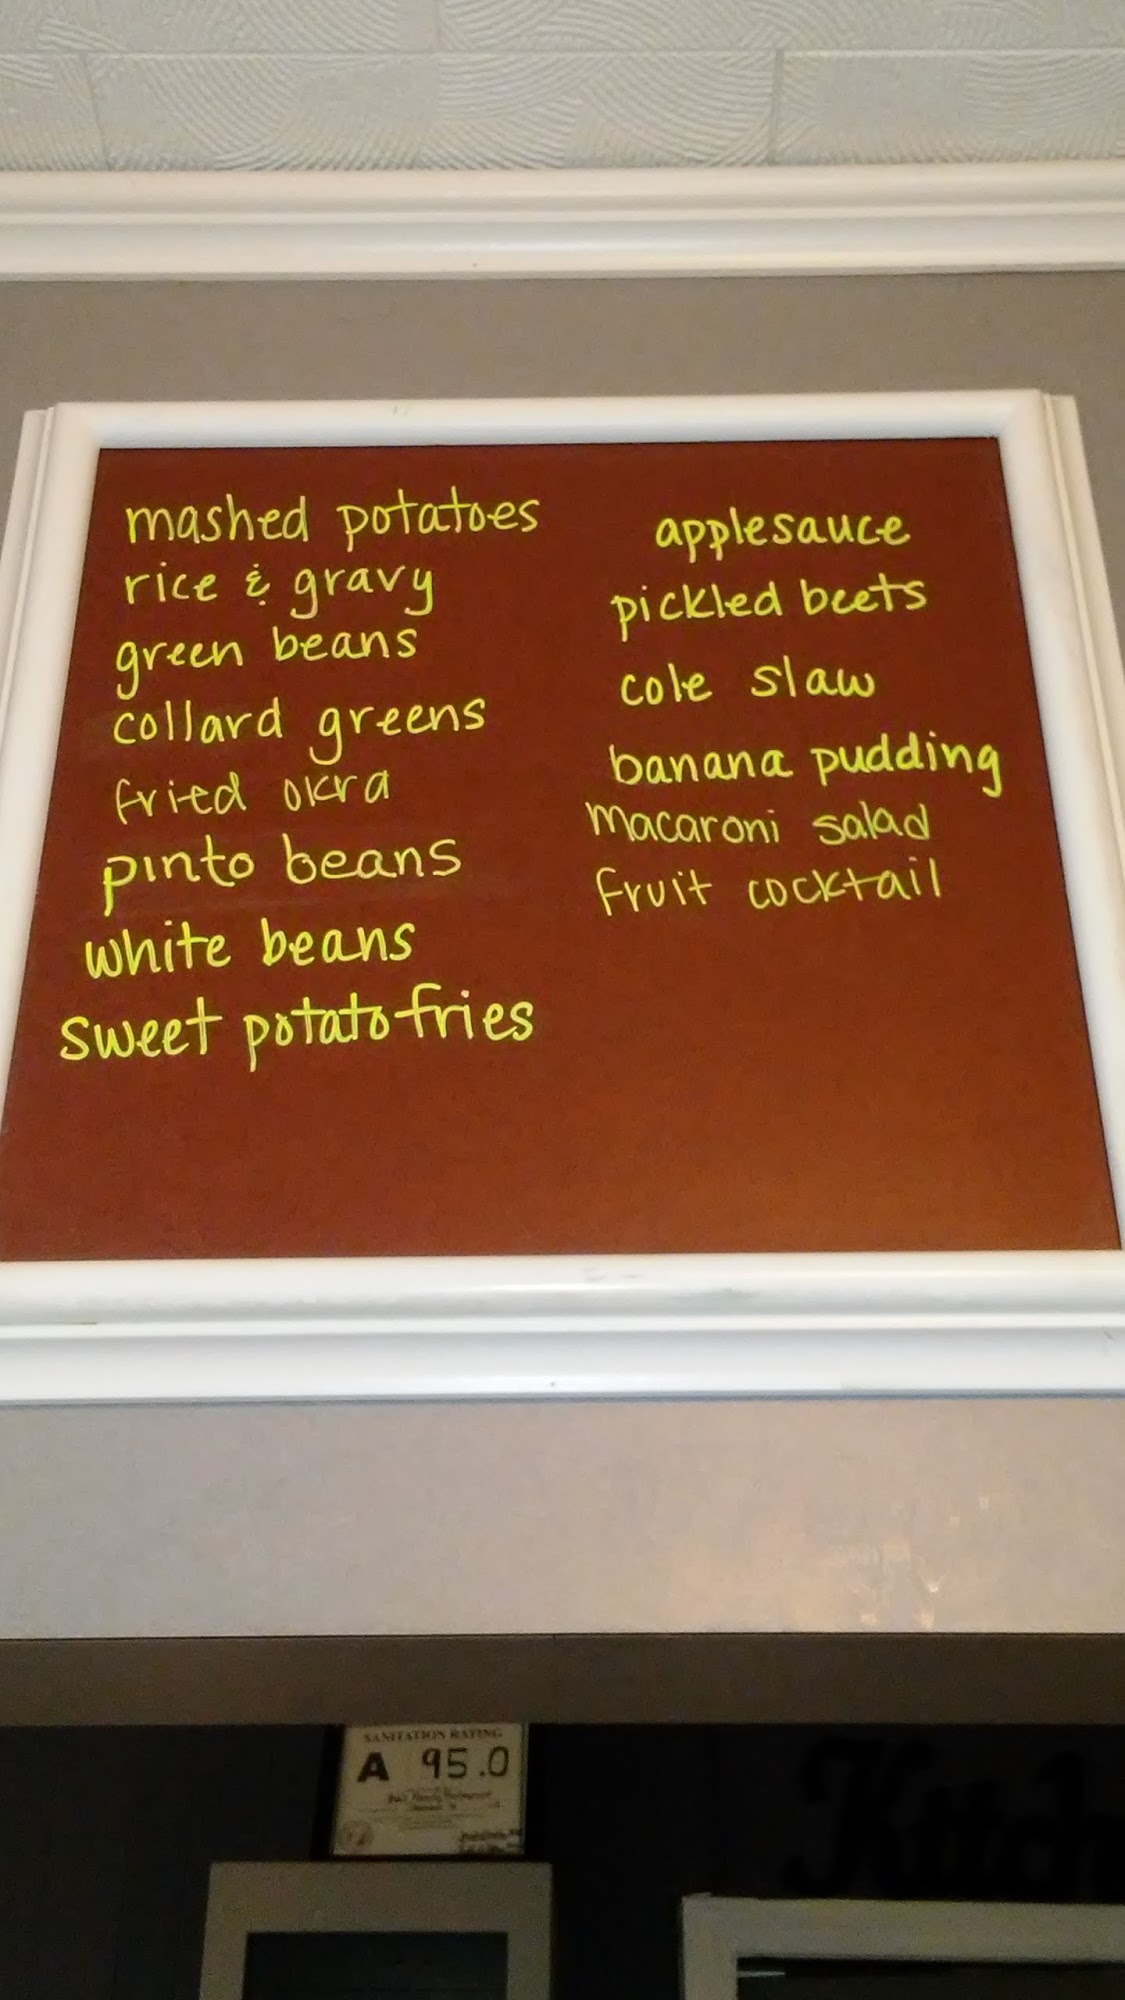 mashed potatoes
rice & gravy
green beans
collard greens
fried okra
pinto beans
white beans
sweet potato fries
applesauce
pickled beets
cole slaw
banana pudding
macaroni salad
fruit cocktail
SANITATION RATING
A 95.0
Kitch